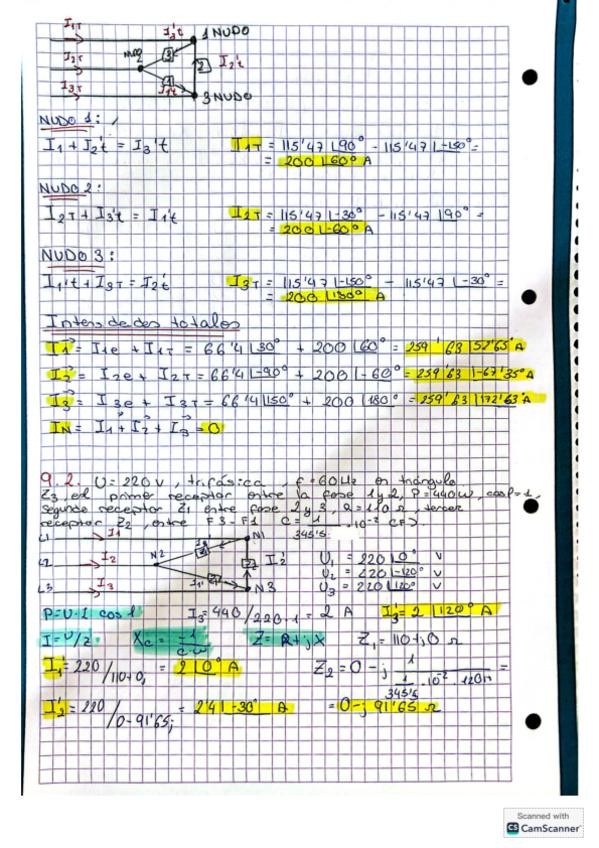 I1T
I3't
1 NUDO
I2T
N2
3
2
I2't
1
I3T
I1't
3 NUDO
NUDO 1:
I1 + I2't = I3't
I1T = 115'47 ∟90° - 115'47 ∟-150° =
= 200 ∟60° A
NUDO 2:
I2T + I3't = I1't
I2T = 115'47 ∟-30° - 115'47 ∟90° =
= 200 ∟-60° A
NUDO 3:
I1't + I3T = I2't
I3T = 115'47 ∟-150° - 115'47 ∟-30° =
= 200 ∟180° A
Intensidades totales
I1 = I1e + I1T = 66'4 ∟30° + 200 ∟60° = 259'63 ∟52'65° A
I2 = I2e + I2T = 66'4 ∟-90° + 200 ∟-60° = 259'63 ∟-67'35° A
I3 = I3e + I3T = 66'4 ∟150° + 200 ∟180° = 259'63 ∟172'63° A
IN = I1 + I2 + I3 = 0
9.2. U = 220 v, trifásica, f = 60 Hz en triángulo.
Z3, el primer receptor entre la fase 1 y 2, P = 440 w, cosφ = 1,
segundo receptor Z1 entre fase 2 y 3, R = 110 Ω, tercer
receptor Z2, entre F3 - F1 C = 1/345'5 · 10^-2 (F).
L1
I1
N1
L2
I2
N2
I2'
L3
I3
I1'
N3
U1 = 220 ∟0° V
U2 = 220 ∟-120° V
U3 = 220 ∟120° V
P = U · I cos φ
I3' = 440/220·1 = 2 A
I3' = 2 ∟120° A
I = U/Z
Xc = -1/c·ω
Z = R + jX
Z1 = 110 + j0 Ω
I1' = 220/110+0j = 2 ∟0° A
Z2 = 0 - j 1/(1/345'5 · 10^-2 · 120π) =
I2' = 220/0-91'65j = 2'4 ∟-30° A
= 0 - j 91'65 Ω
Scanned with
CS CamScanner